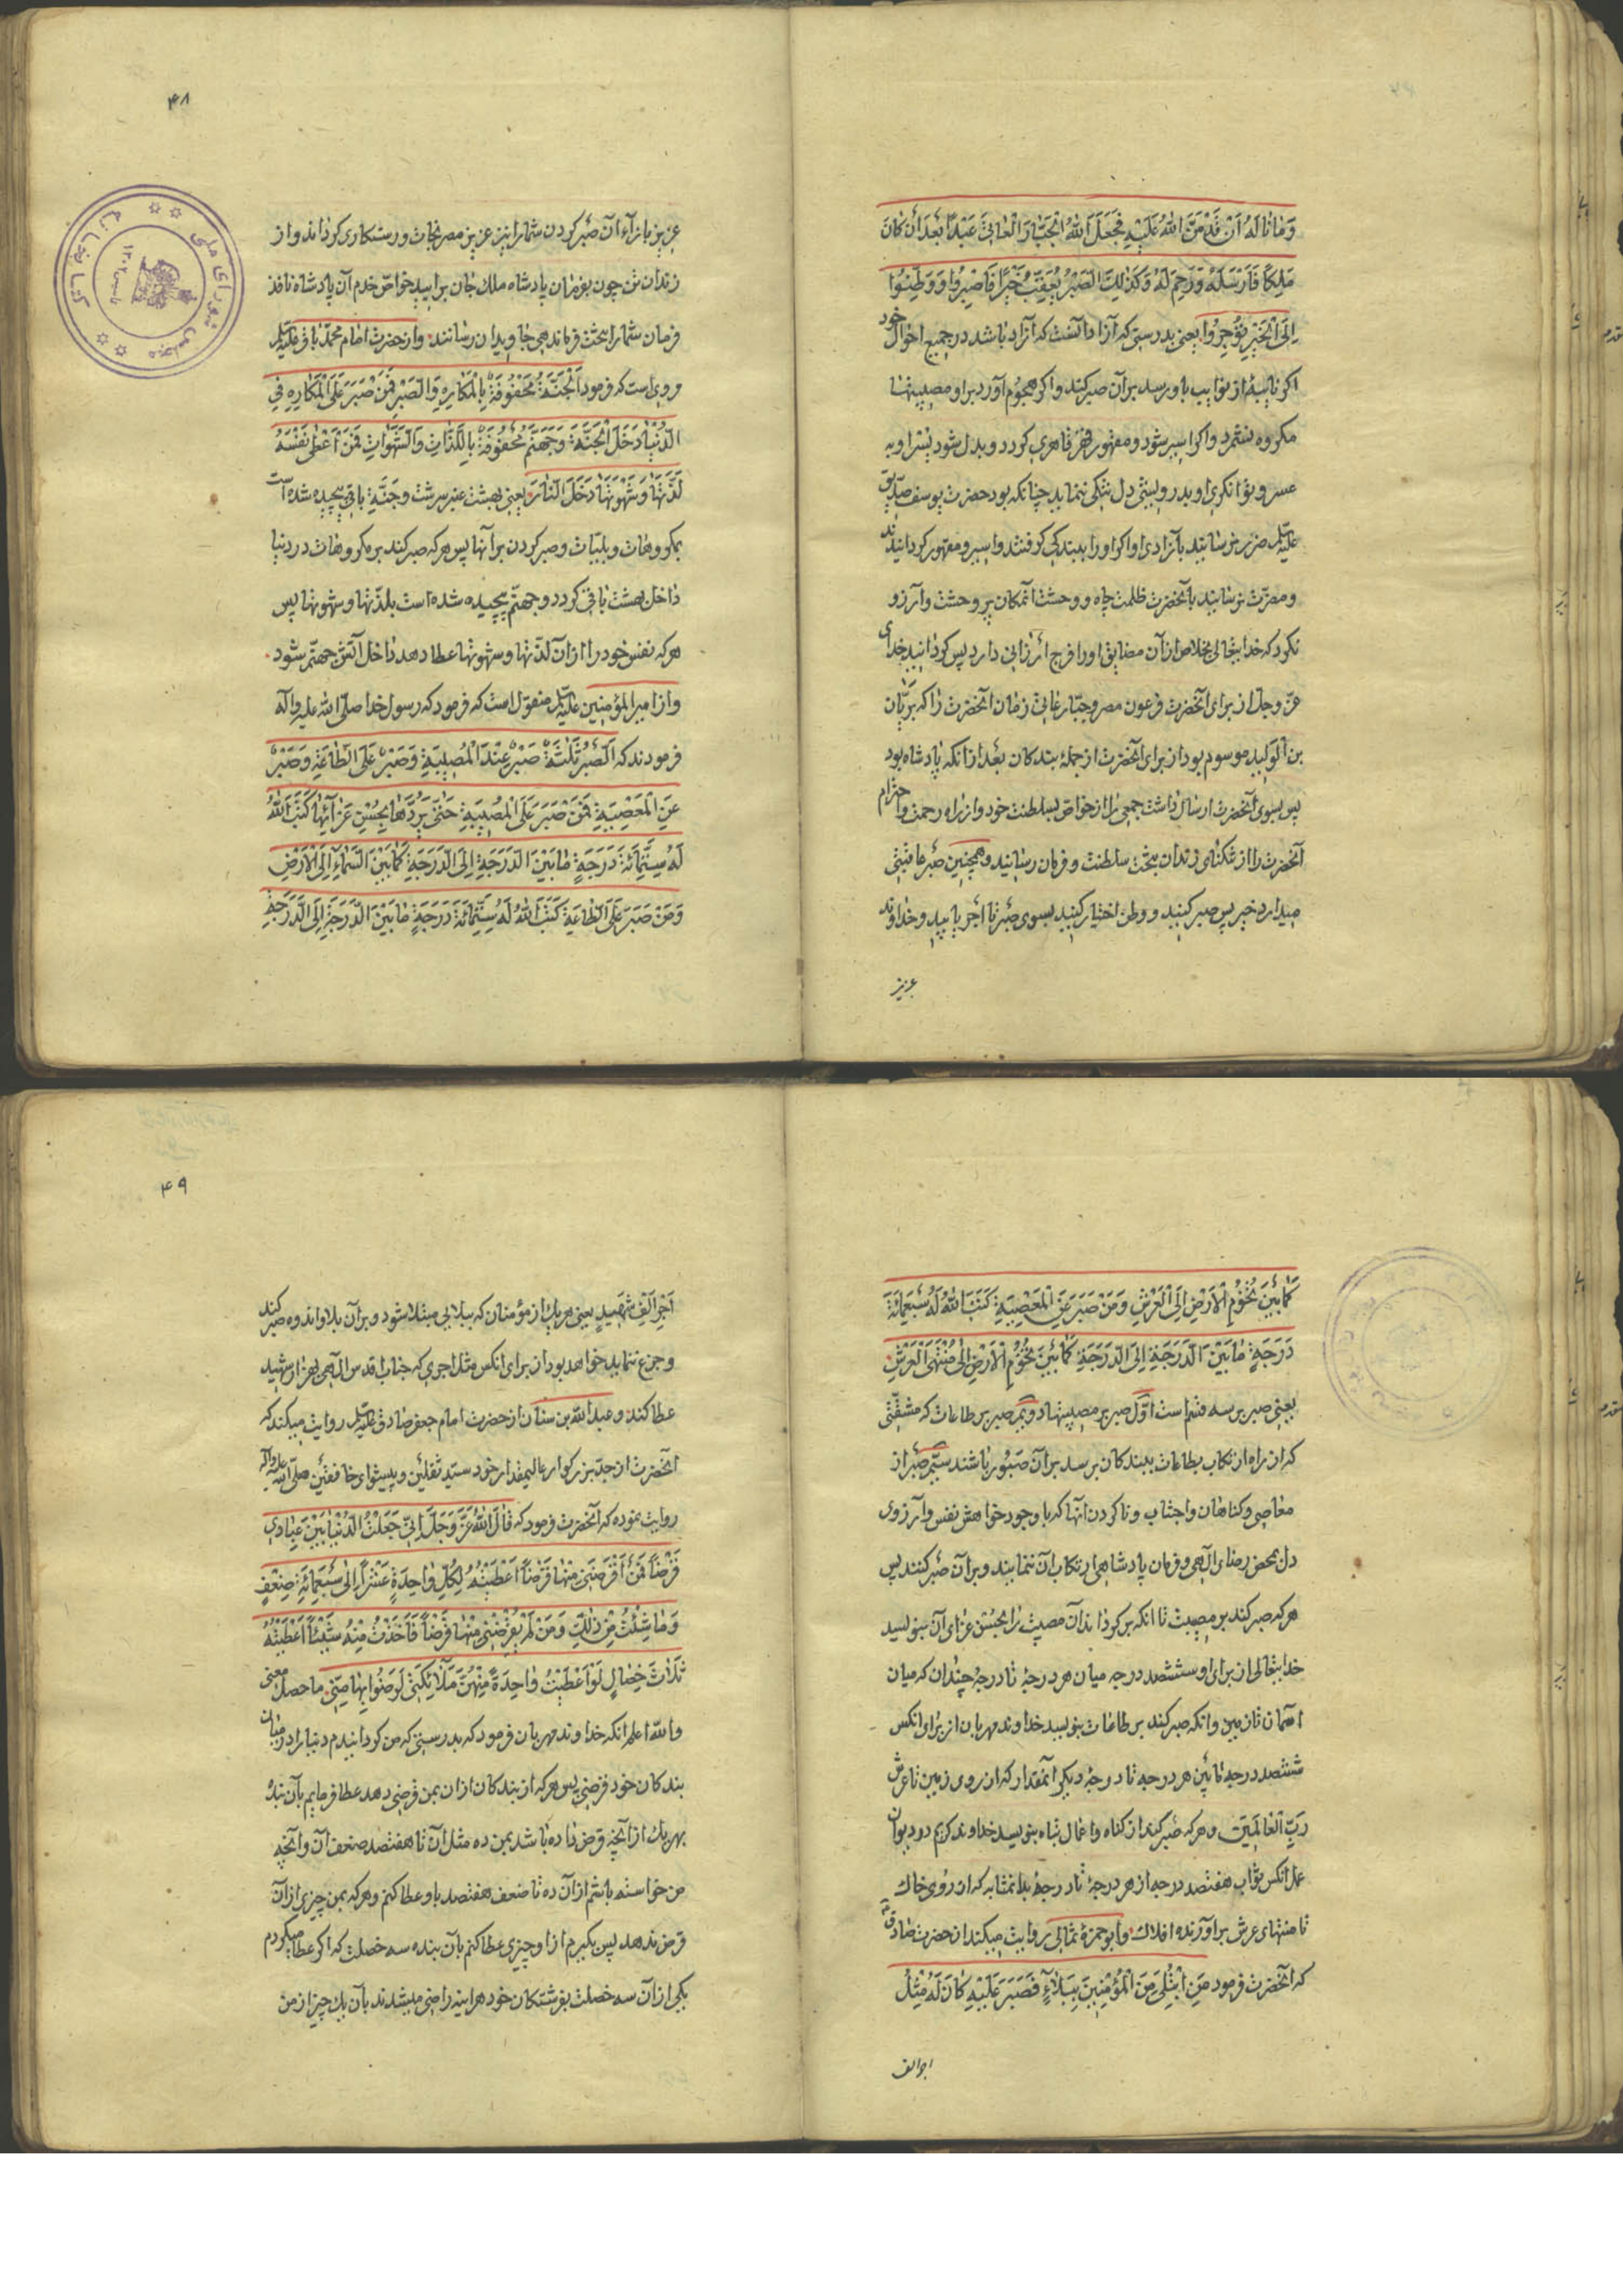 وَمٰا نٰالَهُ اَنْ قَدْ مَنَّ اللهُ عَلَيْهِ فَجَعَلَ اللهُ الْجَبّٰارَ الْعٰاتِيَ عَبْداً بَعْدَ اَنْ كٰانَ
مَلِكاً فَاَرْسَلَهُ وَ رَحِمَ لَهُ وَ كَذٰلِكَ الصَّبْرُ يُعَقِّبُ خَيْراً فَاصْبِرُوا وَ وَطِّنُوا
اِلَى الْخَيْرِ تُؤْجَرُوا یعنی بدرستی که آزاد آنست که آزاد باشد در جمیع احوال خود
اگر نایبهٔ از نوایب باو رسد بر آن صبر کند و اگر هجوم آورد بر او مصیبتها
مکروه نشمرد و اگر اسیر شود و مقهور قهر قاهری گردد و بدل شود یسر او به
عسر و توانگری او بدرویشی دل تنگی ننماید چنانکه بود حضرت یوسف صدّیق
علیه السلم ضرر نرسانید بآزادی او اگر او را ببندگی گرفتند و اسیر و مقهور گردانیدند
و مضرّت نرسانید بآنحضرت ظلمت چاه و وحشت آنمکان پر وحشت و آرزو
نکرد که خدایتعالی بخلاص از آن مضایق او را فرج ارزانی دارد پس گردانید خدای
عزّ و جلّ از برای آنحضرت فرعون مصر و جبّار عاتی زمان آنحضرت را که بریّان
بن الولید موسوم بود از برای آنحضرت از جملهٔ بندگان بعد از آنکه پادشاه بود
پس بسوی آنحضرت ارسال داشت جمعی را از خواصّ بسلطنت خود و از راه رحمت و احترام
آنحضرت را از تنگنای زندان بتخت سلطنت و فرمان رسانید و همچنین صبر عاقبتی
میدارد خیر پس صبر کنید و وطن اختیار کنید بسوی صبر تا اجر یابید و خداوند
عزیز
۴۸
عزیز بازاء آن صبر کردن شما را نیز عزیز مصر نجات و رستکاری گرداند و از
زندان تن چون بفرمان پادشاه ملک جان برایید خواصّ خدم آن پادشاه نافذ
فرمان شما را بتخت فرماندهی جاویدان رسانند. و از حضرت امام محمّد باقر علیه السلم
مروی است که فرمود اَلْجَنَّةُ مَحْفُوفَةٌ بِالْمَكٰارِهِ وَ الصَّبْرِ فَمَنْ صَبَرَ عَلَى الْمَكٰارِهِ فِي
الدُّنْيٰا دَخَلَ الْجَنَّةَ وَ جَهَنَّمُ مَحْفُوفَةٌ بِاللَّذّٰاتِ وَ الشَّهَوٰاتِ فَمَنْ اَعْطٰى نَفْسَهُ
لَذَّتَهٰا وَ شَهْوَتَهٰا دَخَلَ النّٰارَ. یعنی بهشت عنبر سرشت و جنّت باقی پیچیده شده است
بمکروهات و بلیّات و صبر کردن بر آنها پس هر که صبر کند بر مکروهات در دنیا
داخل بهشت باقی گردد و جهنّم پیچیده شده است بلذّتها و شهوتها پس
هر که نفس خود را از آن لذّتها و شهوتها عطا دهد داخل آتش جهنّم شود.
و از امیر المؤمنین علیه السلم منقول است که فرمود که رسول خدا صلّی الله علیه و آله
فرمودند که اَلصَّبْرُ ثَلٰثَةٌ صَبْرٌ عِنْدَ الْمُصِيبَةِ وَ صَبْرٌ عَلَى الطّٰاعَةِ وَ صَبْرٌ
عَنِ الْمَعْصِيَةِ فَمَنْ صَبَرَ عَلَى الْمُصِيبَةِ حَتّٰى يَرُدَّهٰا بِحُسْنِ عَزٰائِهٰا كَتَبَ اللهُ
لَهُ سِتَّمِائَةَ دَرَجَةٍ مٰا بَيْنَ الدَّرَجَةِ اِلَى الدَّرَجَةِ كَمٰا بَيْنَ السَّمٰاءِ اِلَى الْاَرْضِ
وَ مَنْ صَبَرَ عَلَى الطّٰاعَةِ كَتَبَ اللهُ لَهُ سِتَّمِائَةَ دَرَجَةٍ مٰا بَيْنَ الدَّرَجَةِ اِلَى الدَّرَجَةِ
کتابخانه مجلس شورای ملی
كَمٰا بَيْنَ تُخُومِ الْاَرْضِ اِلَى الْعَرْشِ وَ مَنْ صَبَرَ عَنِ الْمَعْصِيَةِ كَتَبَ اللهُ لَهُ سَبْعَمِائَةَ
دَرَجَةٍ مٰا بَيْنَ الدَّرَجَةِ اِلَى الدَّرَجَةِ كَمٰا بَيْنَ تُخُومِ الْاَرْضِ اِلٰى مُنْتَهَى الْعَرْشِ.
یعنی صبر بر سه قسم است اوّل صبر بر مصیبتها دویّم صبر بر طاعات که مشقّتی
که از راه ارتکاب بطاعات ببندگان برسد بر آن صبور باشند سیّم صبر از
معاصی و گناهان و اجتناب و ناکردن آنها که با وجود خواهش نفس و آرزوی
دل بمحض رضای الهی و فرمان پادشاهی ارتکاب آن ننمایند و بر آن صبر کنند پس
هر که صبر کند بر مصیبت تا آنکه برگرداند آن مصیبت را بحسن عزای آن بنویسد
خدایتعالی از برای او ششصد درجه میان هر درجهٔ تا درجهٔ چندان که میان
آسمان تا زمین و آنکه صبر کند بر طاعات بنویسد خداوند مهربان از برای آنکس
ششصد درجه مابین هر درجه تا درجهٔ دیگر آنمقدار که از روی زمین تا عرش
ربّ العالمین و هر که صبر کند از گناه و اعمال تباه بنویسد خداوند کریم در دیوان
عمل آنکس ثواب هفتصد درجه از هر درجهٔ تا درجهٔ بدانمثابه که از روی خاک
تا منتهای عرش برآورنده افلاک. و ابو حمزهٔ ثمالی روایت میکند از حضرت صادق
که آنحضرت فرمود مَنِ ابْتُلِيَ مِنَ الْمُؤْمِنِينَ بِبَلٰاءٍ فَصَبَرَ عَلَيْهِ كٰانَ لَهُ مِثْلُ
اجر الف
۴۹
اَجْرِ اَلْفِ شَهِيدٍ یعنی هر یک از مؤمنان که ببلایی مبتلا شود و بر آن بلا و اندوه صبر کند
و جزع ننماید خواهد بود از برای آنکس مثل اجری که جناب اقدس الهی بهزار شهید
عطا کند و عبد الله بن سنان از حضرت امام جعفر صادق علیه السلم روایت میکند که
آنحضرت از جدّ بزرگوار عالیمقدار خود سیّد ثقلین و پیشوای خافقین صلّی الله علیه و آله
روایت نموده که آنحضرت فرمود که قٰالَ اللهُ عَزَّ وَ جَلَّ اِنّي جَعَلْتُ الدُّنْيٰا بَيْنَ عِبٰادِي
قَرْضاً فَمَنْ اَقْرَضَنِي مِنْهٰا قَرْضاً اَعْطَيْتُهُ لِكُلِّ وٰاحِدَةٍ عَشْراً اِلٰى سَبْعِمِائَةِ ضِعْفٍ
وَ مٰا شِئْتُ مِنْ ذٰلِكَ وَ مَنْ لَمْ يُقْرِضْنِي مِنْهٰا قَرْضاً فَاَخَذْتُ مِنْهُ شَيْئاً اَعْطَيْتُهُ
ثَلٰاثَ خِصٰالٍ لَوْ اَعْطَيْتُ وٰاحِدَةً مِنْهُنَّ مَلٰائِكَتِي لَرَضُوا بِهٰا مِنّي. ماحصل معنی
و الله اعلم آنکه خداوند مهربان فرمود که بدرستی که من گردانیدم دنیا را در میان
بندگان خود قرضی پس هر که از بندگان از آن بمن قرضی دهد عطا فرمایم بآن بنده
بهر یک از آنچه قرض داده باشد بمن ده مثل آن تا هفتصد ضعف آن و آنچه
من خواسته باشم از آن ده تا ضعف هفتصد باو عطا کنم و هر که بمن چیزی از آن
قرض ندهد پس بگیرم از او چیزی عطا کنم بآن بنده سه خصلت که اگر عطا میکردم
یکی از آن سه خصلت بفرشتگان خود هر اینه راضی میشدند بآن یک چیز از من